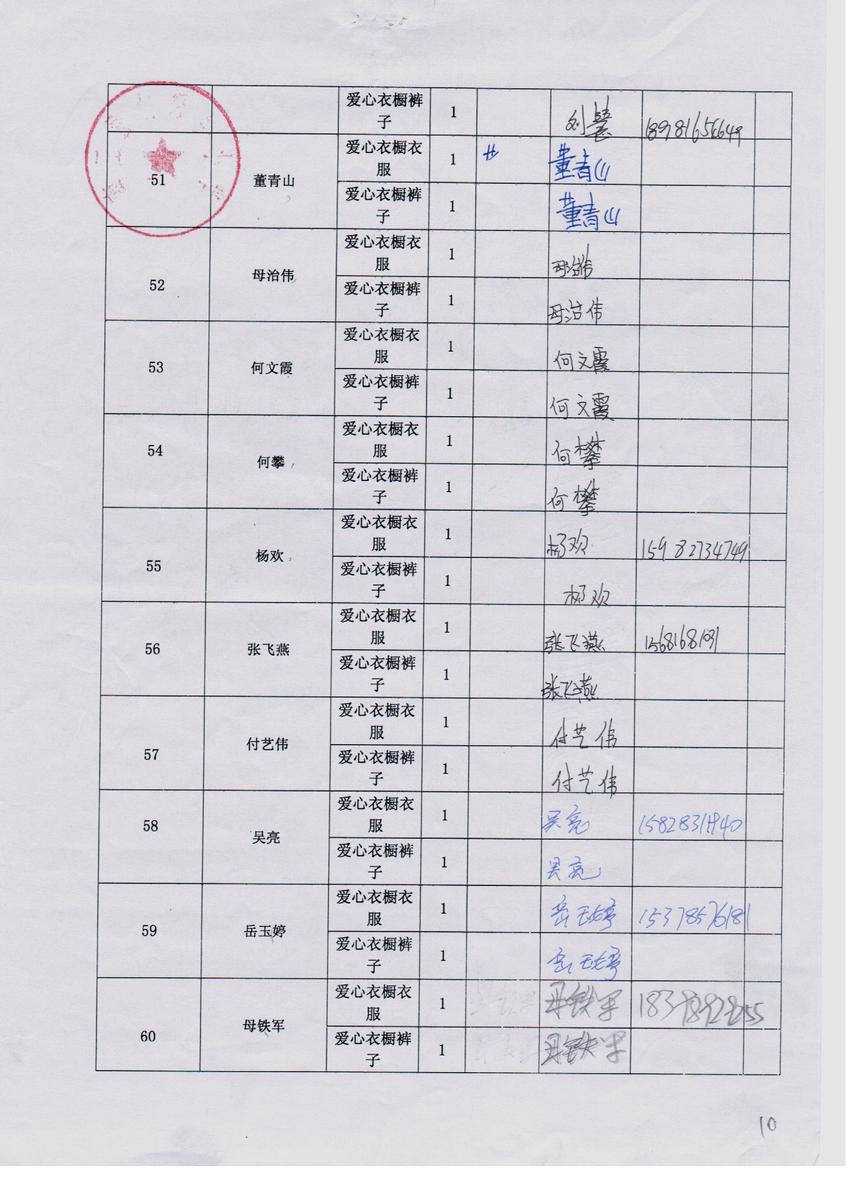 爱心衣橱裤子 1 刘慧
51 董青山 爱心衣橱衣服 1 董青山
爱心衣橱裤子 1 董青山
52 母治伟 爱心衣橱衣服 1 母治伟
爱心衣橱裤子 1 母治伟
53 何文霞 爱心衣橱衣服 1 何文霞
爱心衣橱裤子 1 何文霞
54 何攀 爱心衣橱衣服 1 何攀
爱心衣橱裤子 1 何攀
55 杨欢 爱心衣橱衣服 1 杨欢 15982734749
爱心衣橱裤子 1 杨欢
56 张飞燕 爱心衣橱衣服 1 张飞燕
爱心衣橱裤子 1 张飞燕
57 付艺伟 爱心衣橱衣服 1 付艺伟
爱心衣橱裤子 1 付艺伟
58 吴亮 爱心衣橱衣服 1 吴亮
爱心衣橱裤子 1 吴亮
59 岳玉婷 爱心衣橱衣服 1 岳玉婷 15378576181
爱心衣橱裤子 1 岳玉婷
60 母铁军 爱心衣橱衣服 1 母铁军
爱心衣橱裤子 1 母铁军
10